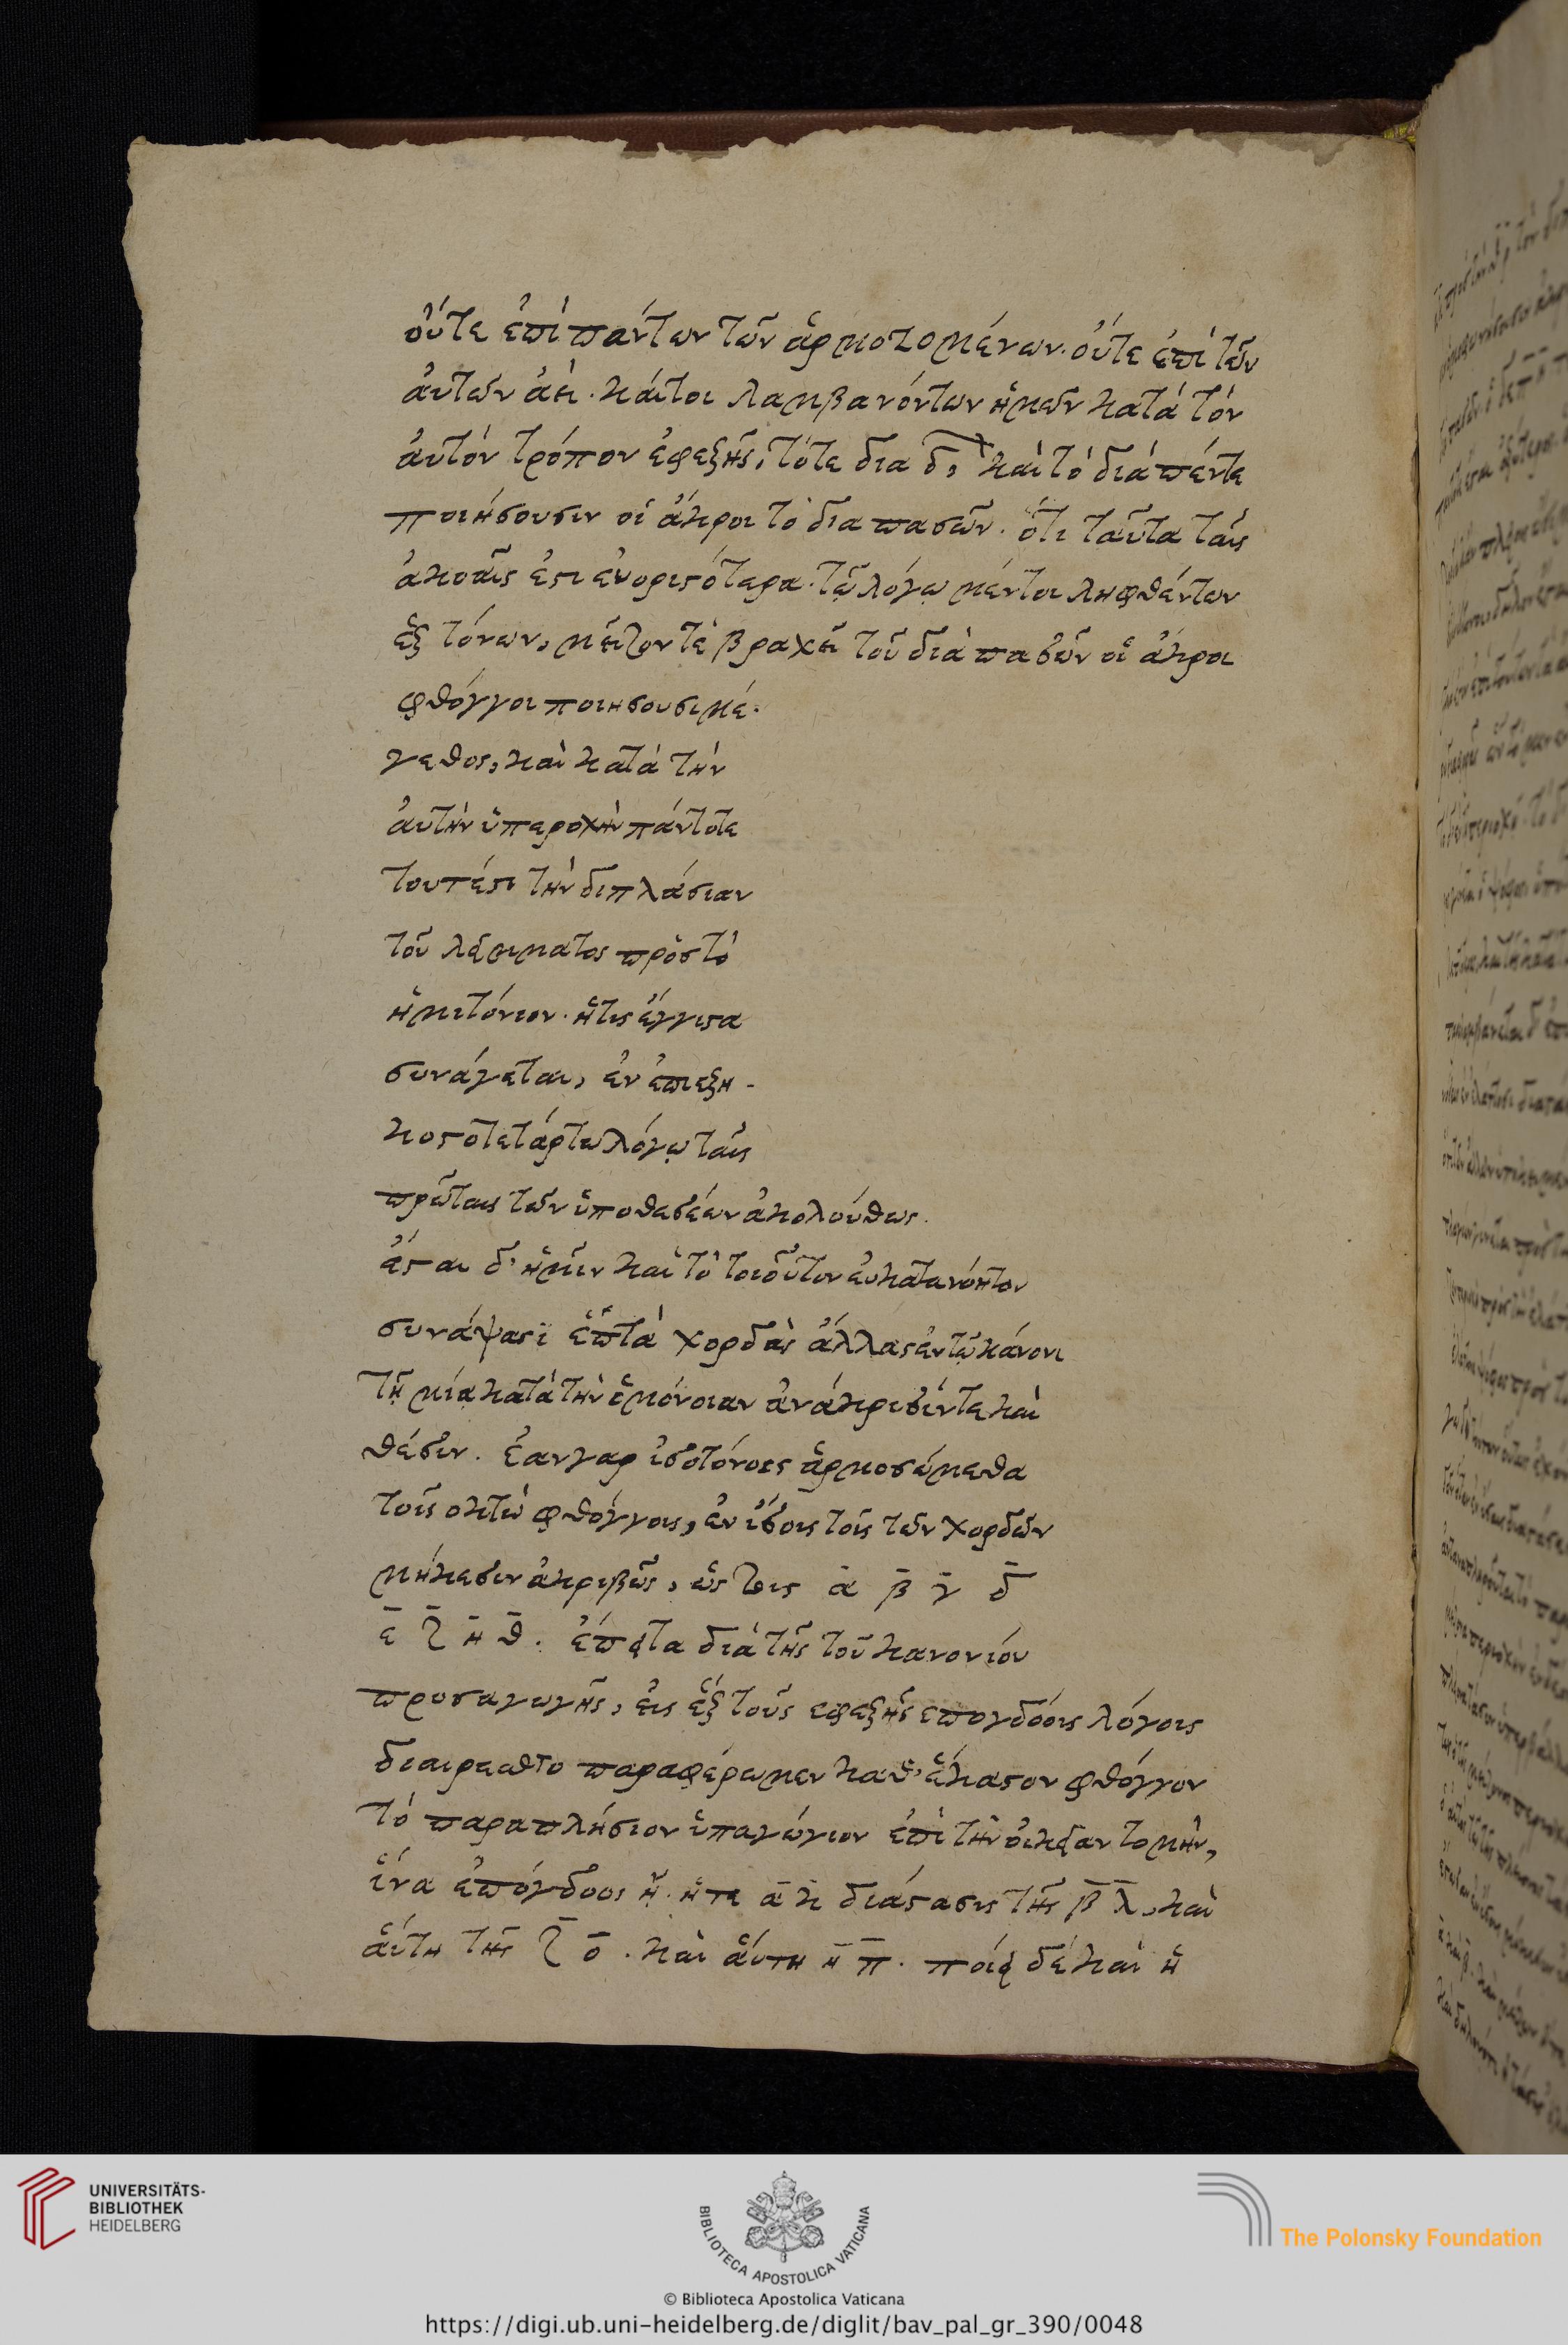 οὔτε ἐπὶ πάντων τῶν ἁρμοζομένων. οὔτε ἐπὶ τῶν
ἀυτῶν ἀεὶ. κάιτοι λαμβανόντων ἡμῶν κατὰ τὸν
ἀυτὸν τρόπον ἐφεξῆς, τότε δια δ, καὶ τὸ διὰ πέντε
ποιήσουσιν οἱ ἄκροι τὸ δια πασῶν. ὅτι ταῦτα ταῖς
ἀκοαῖς ἐστι ἐυοριστότερα. τῶ λόγω μέντοι ληφθέντων
ἓξ τόνων, μεῖζον τὲ βραχεῖ τοῦ διὰ πασῶν οἱ ἄκροι
φθόγγοι ποιησουσι μέ-
γεθος, καὶ κατὰ τὴν
ἀυτὴν ὑπεροχὴν πάντοτε
τουτέστι τὴν διπλάσιαν
τοῦ λείμματος πρὸς τὸ
ἡμιτόνιον. ἥτις ἔγγιστα
συνάγεται, ἐν ἐπιεξη-
κοστοτετάρτω λόγω ταῖς
πρῶταις τῶν ὑποθεσέων ἀκολούθως.
ἔσται δ' ἡμῖν καὶ τὸ τοιοῦτον ἐυκατανόητον
συνάψασι ἑπτὰ χορδὰς ἄλλας ἐν τῶ κάνονι
τῆ μία κατὰ τὴν ὁμόνοιαν ἀνάκρισίν τε καὶ
θέσιν. ἐαν γαρ ἰσοτόνους ἁρμοσώμεθα
τοῖς οκτὼ φθόγγοις, ἐν ἴσοις τοῖς τῶν χορδῶν
μήκεσιν ἀκριβῶς, ὡς τοις α β γ δ
ε ζ η θ. ἔπειτα διὰ τῆς τοῦ κανονίου
προσαγωγῆς, εἰς ἓξ τοὺς εφεξῆς εποyδόοις λόγοις
διαιρεωθτο παραφέρωμεν καθ' ἕκαστον φθόγγον
τὸ παραπλήσιον ὑπαγώγιον ἐπὶ τὴν ὀικείαν τομὴν,
ἵνα ἐπόγδοος ἦ. ἥτε α κ διάστασις τῆς β λ, καὶ
ἅυτη τῆς ζ ο. καὶ ἅυτη η π. ποιεῖ δέ καὶ ἡ
UNIVERSITÄTS-
BIBLIOTHEK
HEIDELBERG
BIBLIOTECA APOSTOLICA VATICANA
The Polonsky Foundation
© Biblioteca Apostolica Vaticana
https://digi.ub.uni-heidelberg.de/diglit/bav_pal_gr_390/0048